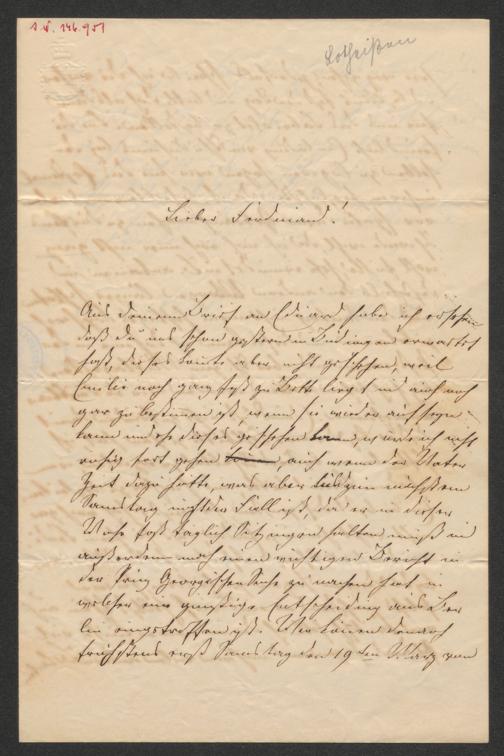 I. N. 146.951
Lotheißen
Lieber Ferdinand!
Aus deinem Brief an Eduard habe ich ersehen
daß du uns schon gestern in Büdingen erwartet
hast, dieses konnte aber nicht geschehen, weil
Emilie noch ganz fest zu Bette liegt und auch noch
gar zu bestimmen ist, wenn sie wieder aufseyn
kann und ehe dieses geschehen kann, würde ich nicht
ruhig fort gehen auch wenn der Vater
Zeit dazu hätte, was aber bis zum nächsten
Samstag nicht der Fall ist, da er in dieser
Woche fast täglich Sitzungen halten muß und
außerdem noch einen wichtigen Bericht in
der Prinz Georgischen Sache zu machen hat in
welcher eine günstige Entscheidung aus Ber
lin eingetroffen ist. Wir können demnach
frühstens erst Samstag den 19ten März von